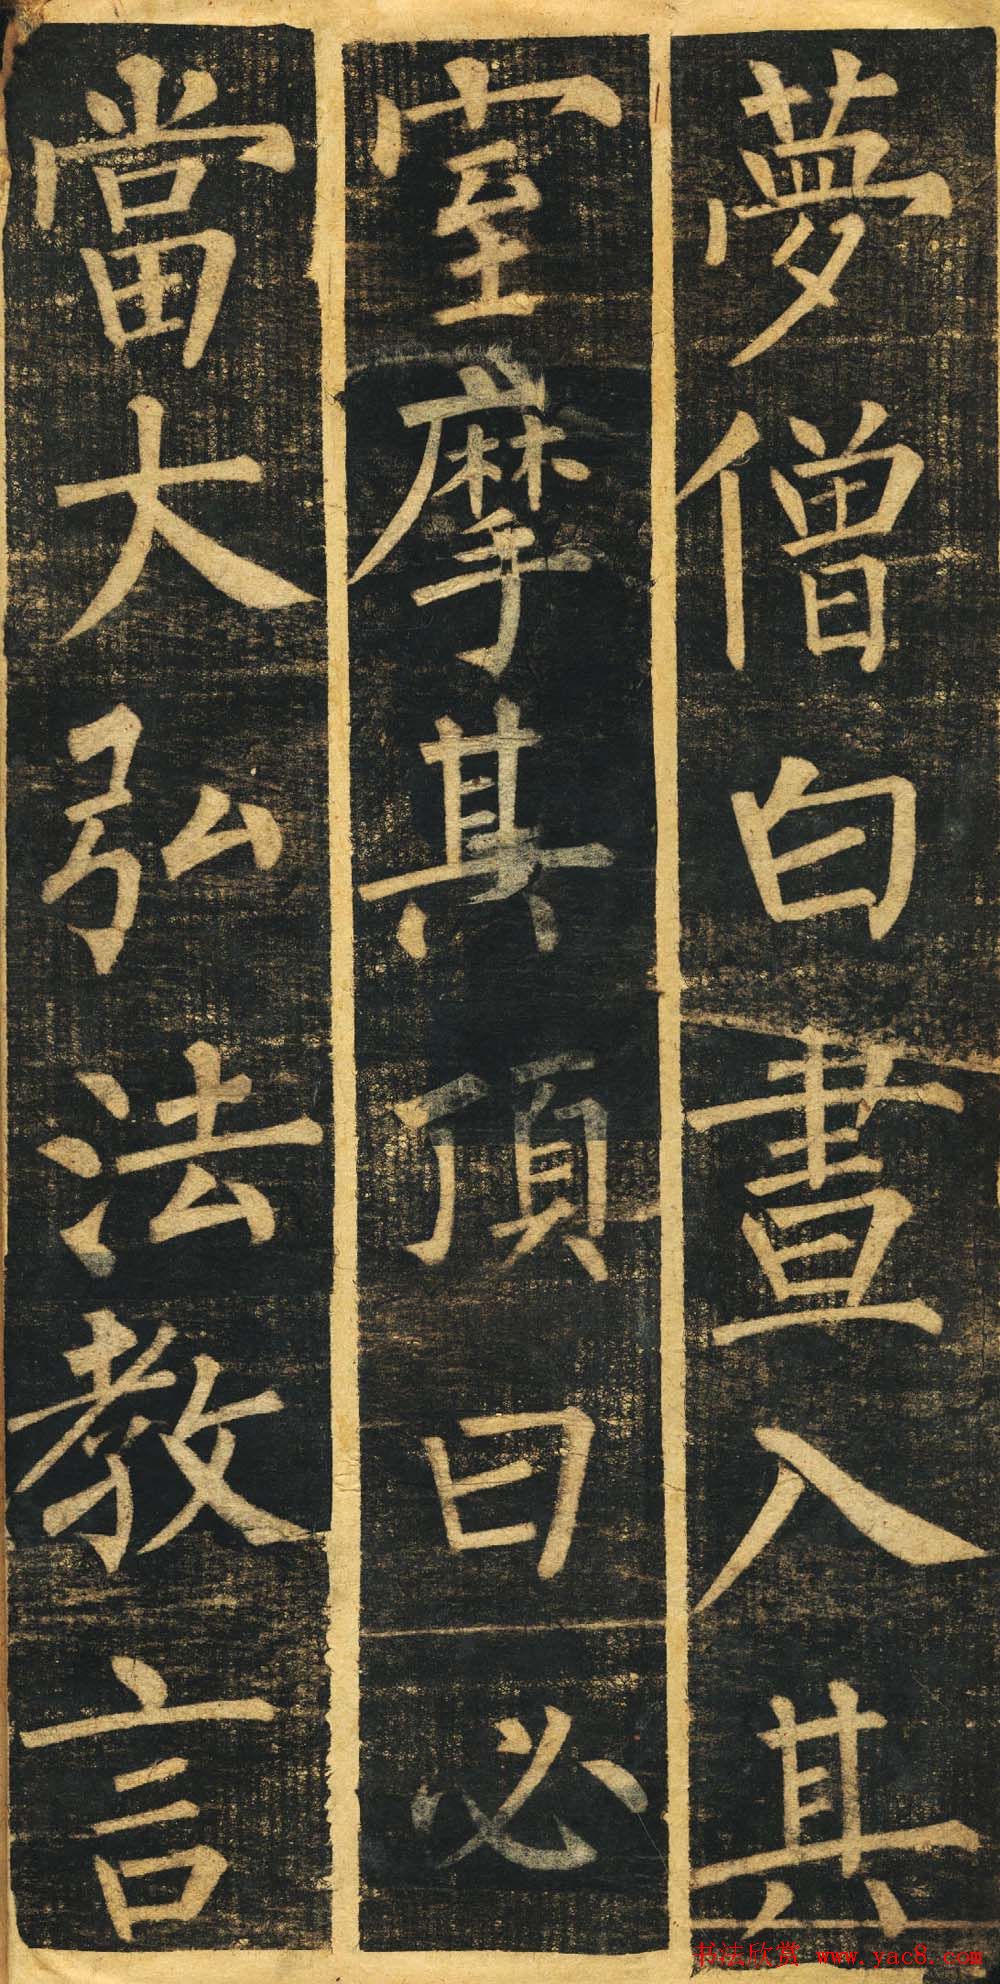 夢僧白晝入其
室摩其頂曰必
當大弘法教言
书法欣赏 www.yac8.com